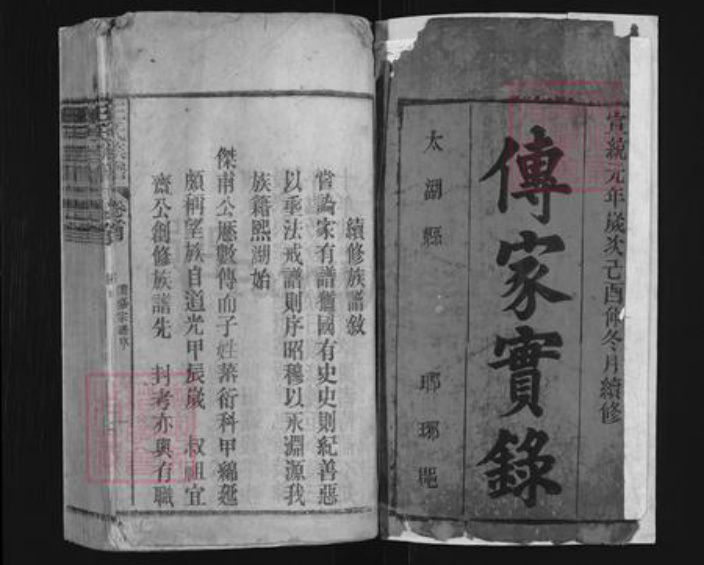 宣統元年歲次己酉仲冬月續修
傳家實錄
太湖縣
瑯琊郡
續修族譜敘
嘗論家有譜猶國有史史則紀善惡
以垂法戒譜則序昭穆以永淵源我
族籍熙湖始
傑甫公厯數傳而子姓蕃衍科甲綿延
頗稱望族自道光甲辰歲 叔祖宜
齋公創修族譜先 封考亦與有職
卷首